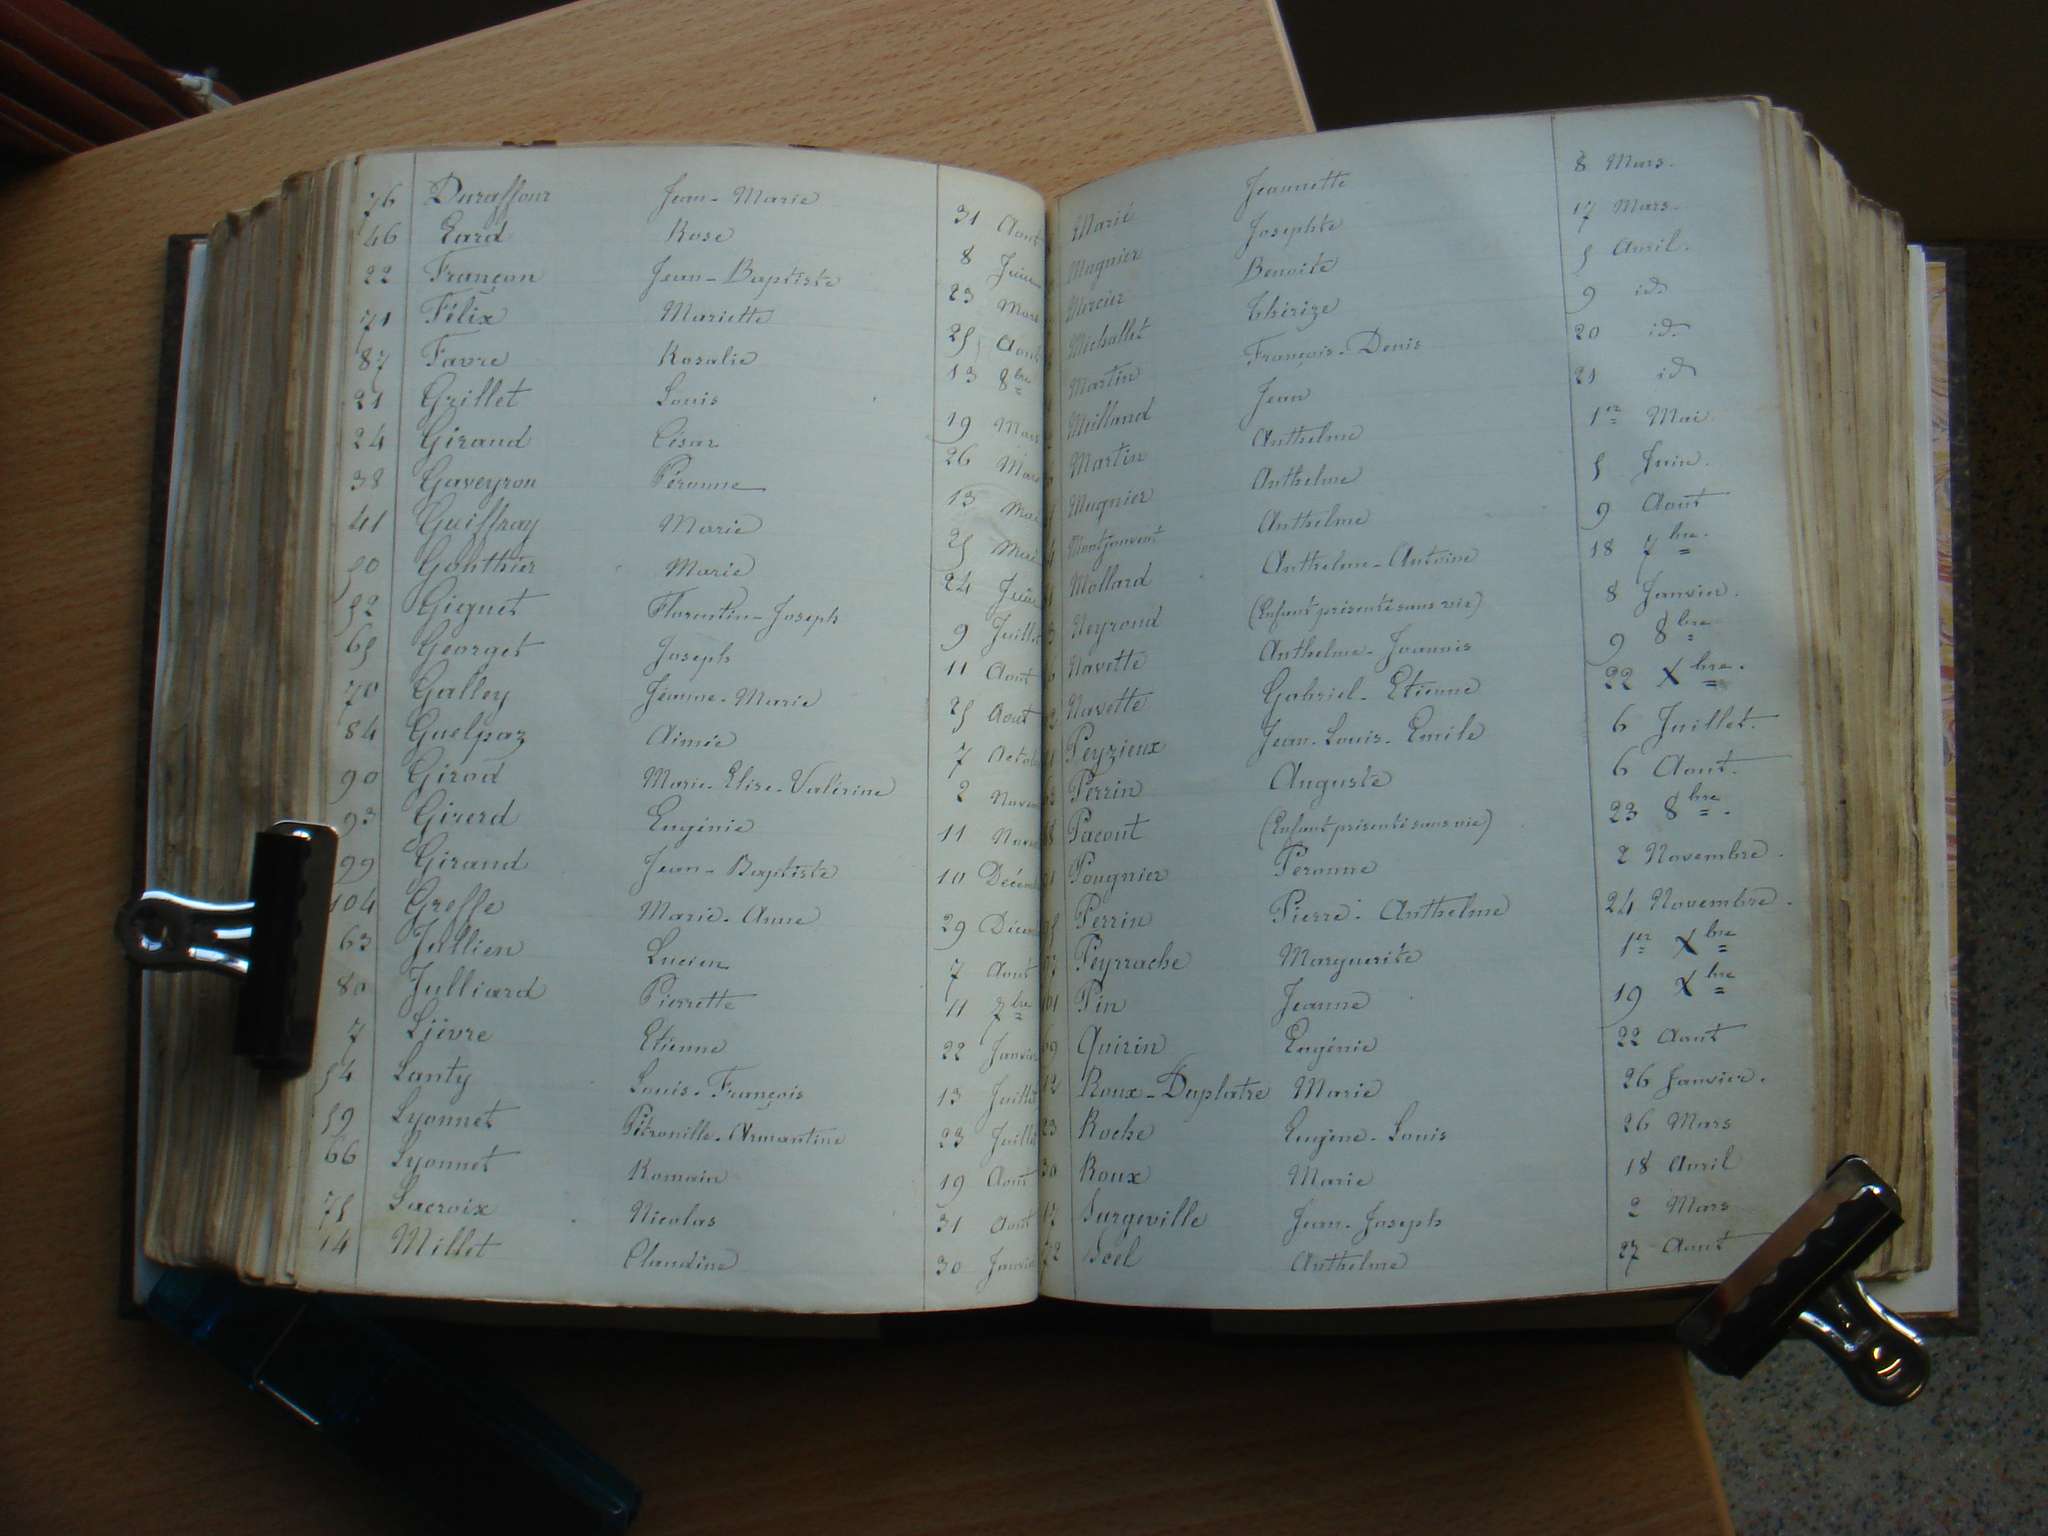 76 Duraffour Jean-Marie 31 Aout
46 Eard Rose 8 Juin
22 Françon Jean-Baptiste 23 Mars
71 Félix Mariette 25 Aout
87 Favre Rosalie 13 8bre
21 Grillet Louis 19 Mars
24 Giraud César 26 Mars
38 Gaveyron Péronne 13 Mai
41 Guiffray Marie 25 Mai
50 Gonthier Marie 24 Juin
52 Giguet Florentin-Joseph 9 Juillet
65 Georget Joseph 11 Aout
70 Galley Jeanne-Marie 25 Aout
84 Guelpaz Aimée 7 Octob
90 Girod Marie-Elise-Valérine 2 Novem
93 Girerd Eugénie 11 Nove
99 Giraud Jean-Baptiste 10 Décem
104 Greffe Marie-Anne 29 Décem
63 Jullien Lucien 7 Aout
80 Julliard Pierrette 11 7bre
7 Lièvre Etienne 22 Janvier
54 Lanty Louis-François 13 Juillet
59 Lyonnet Pétronille-Armantine 23 Juillet
66 Lyonnet Romain 19 Aout
75 Lacroix Nicolas 31 Aout
14 Millet Claudine 30 Janvie
Marié Jeannette 8 Mars.
Magnier Josephte 17 Mars.
Mercier Benoite 5 Avril.
Michallet Thérèze 9 id.
Martin François-Denis 20 id.
Meilland Jean 21 id
Martin Anthelme 1er Mai.
Mugnier Anthelme 5 Juin.
Montjouvent Anthelme 9 Aout
Mollard Anthelme-Antoine 18 7bre.
Neyroud (Enfant présenté sans vie) 8 Janvier.
Navette Anthelme-Joannis 9 8bre
Navette Gabriel-Etienne 22 Xbre.
Peyzieux Jean-Louis-Emile 6 Juillet.
Perrin Auguste 6 Aout.
Pacout (Enfant présenté sans vie) 23 8bre.
Pougnier Peronne 2 Novembre.
Perrin Pierre-Anthelme 24 Novembre.
Peyrrache Marguerite 1er Xbre
101 Pin Jeanne 19 Xbre
69 Quirin Eugénie 22 Aout
12 Roux-Duplatre Marie 26 Janvier.
23 Roche Eugène-Louis 26 Mars
30 Roux Marie 18 Avril
17 Surgeville Jean-Joseph 2 Mars
72 Scel Anthelme 27 Aout